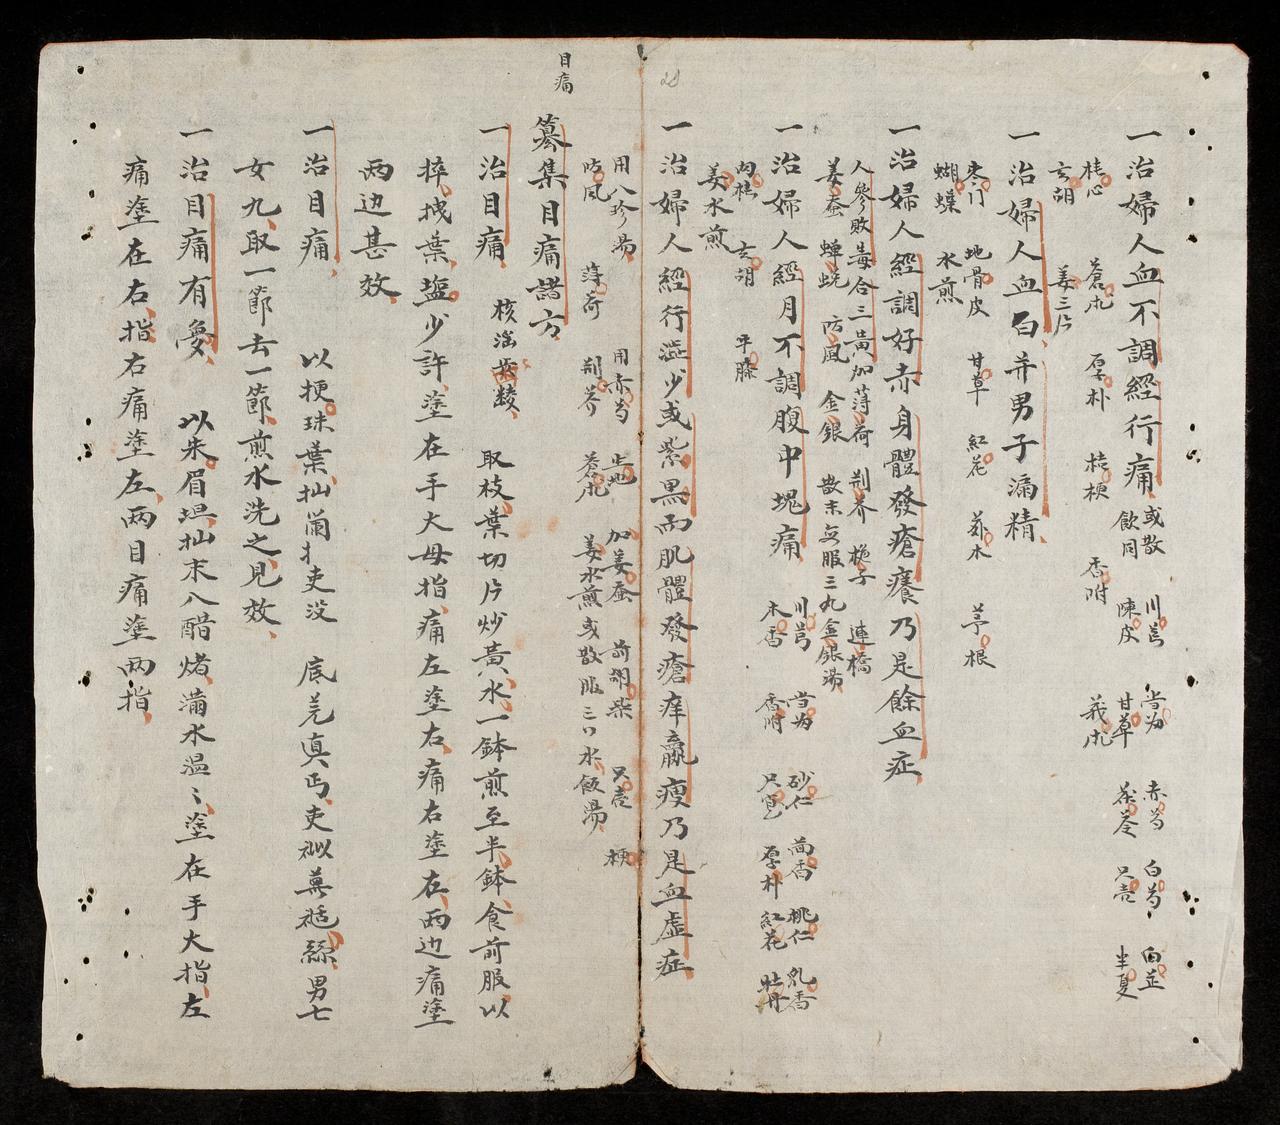 一治婦人血不調經行痛 或散飲同 川芎 當為 赤芍 白芍 白芷
陳皮 甘草 茯苓 只壳 半夏
桂心 蒼朮 厚朴 桔梗 香附 莪朮
玄胡 姜三片
一治婦人血白并男子漏精
麥门 地骨皮 甘草 紅花 蘇木 茅根
蝴蠂 水煎
一治婦人經調好赤身體發瘡癢乃是餘血症
人參敗毒合三黃加薄荷 荆芥 梔子 連橋
姜蚕 蟬蛻 防風 金銀 散末 每服三丸金銀湯
一治婦人經月不調腹中塊痛 川芎 當为 砂仁 茴香 桃仁 乳香
木香 香附 只實 厚朴 紅花 牡丹
肉桂 玄胡 牛膝
姜水煎
一治婦人經行澁少或紫黑而肌體發瘡痒羸瘦乃是血虛症
用八珍湯 用赤芍 生地 加姜蚕 前胡柴 只壳 梗
防風 薄荷 荆芥 蒼朮 姜水煎或散服三口水飯湯
目痛
纂集目痛諸方
一治目痛 取枝葉切片炒黃水一鉢煎至半鉢食前服以
葉塩少許塗在手大母指痛左塗右痛右塗在兩边痛塗
兩边甚效
一治目痛 以梗珠葉 吏没 底 真丐吏 男七
女九取一節去一節煎水洗之見效
一治目痛有 以朱眉 末八醋 满水温〻塗在手大指左
痛塗在右指右痛塗左兩目痛塗兩指